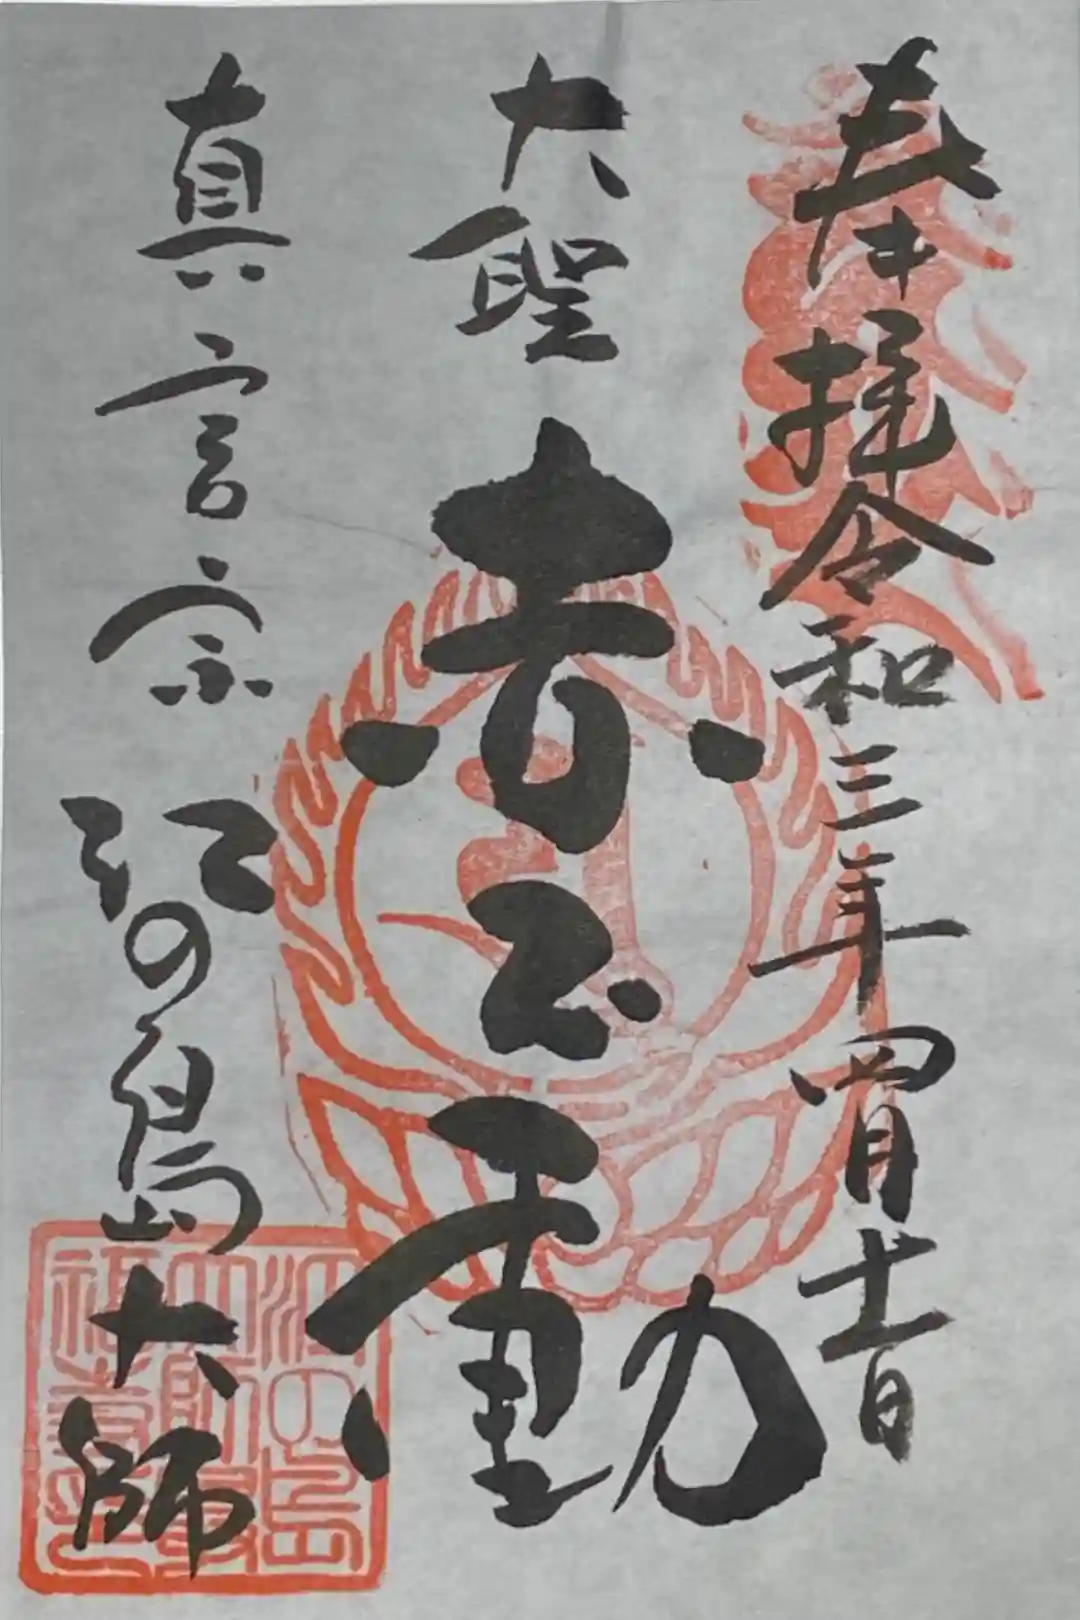 奉拝令和三年四月十一日
大聖赤不動
真言宗江の島大師